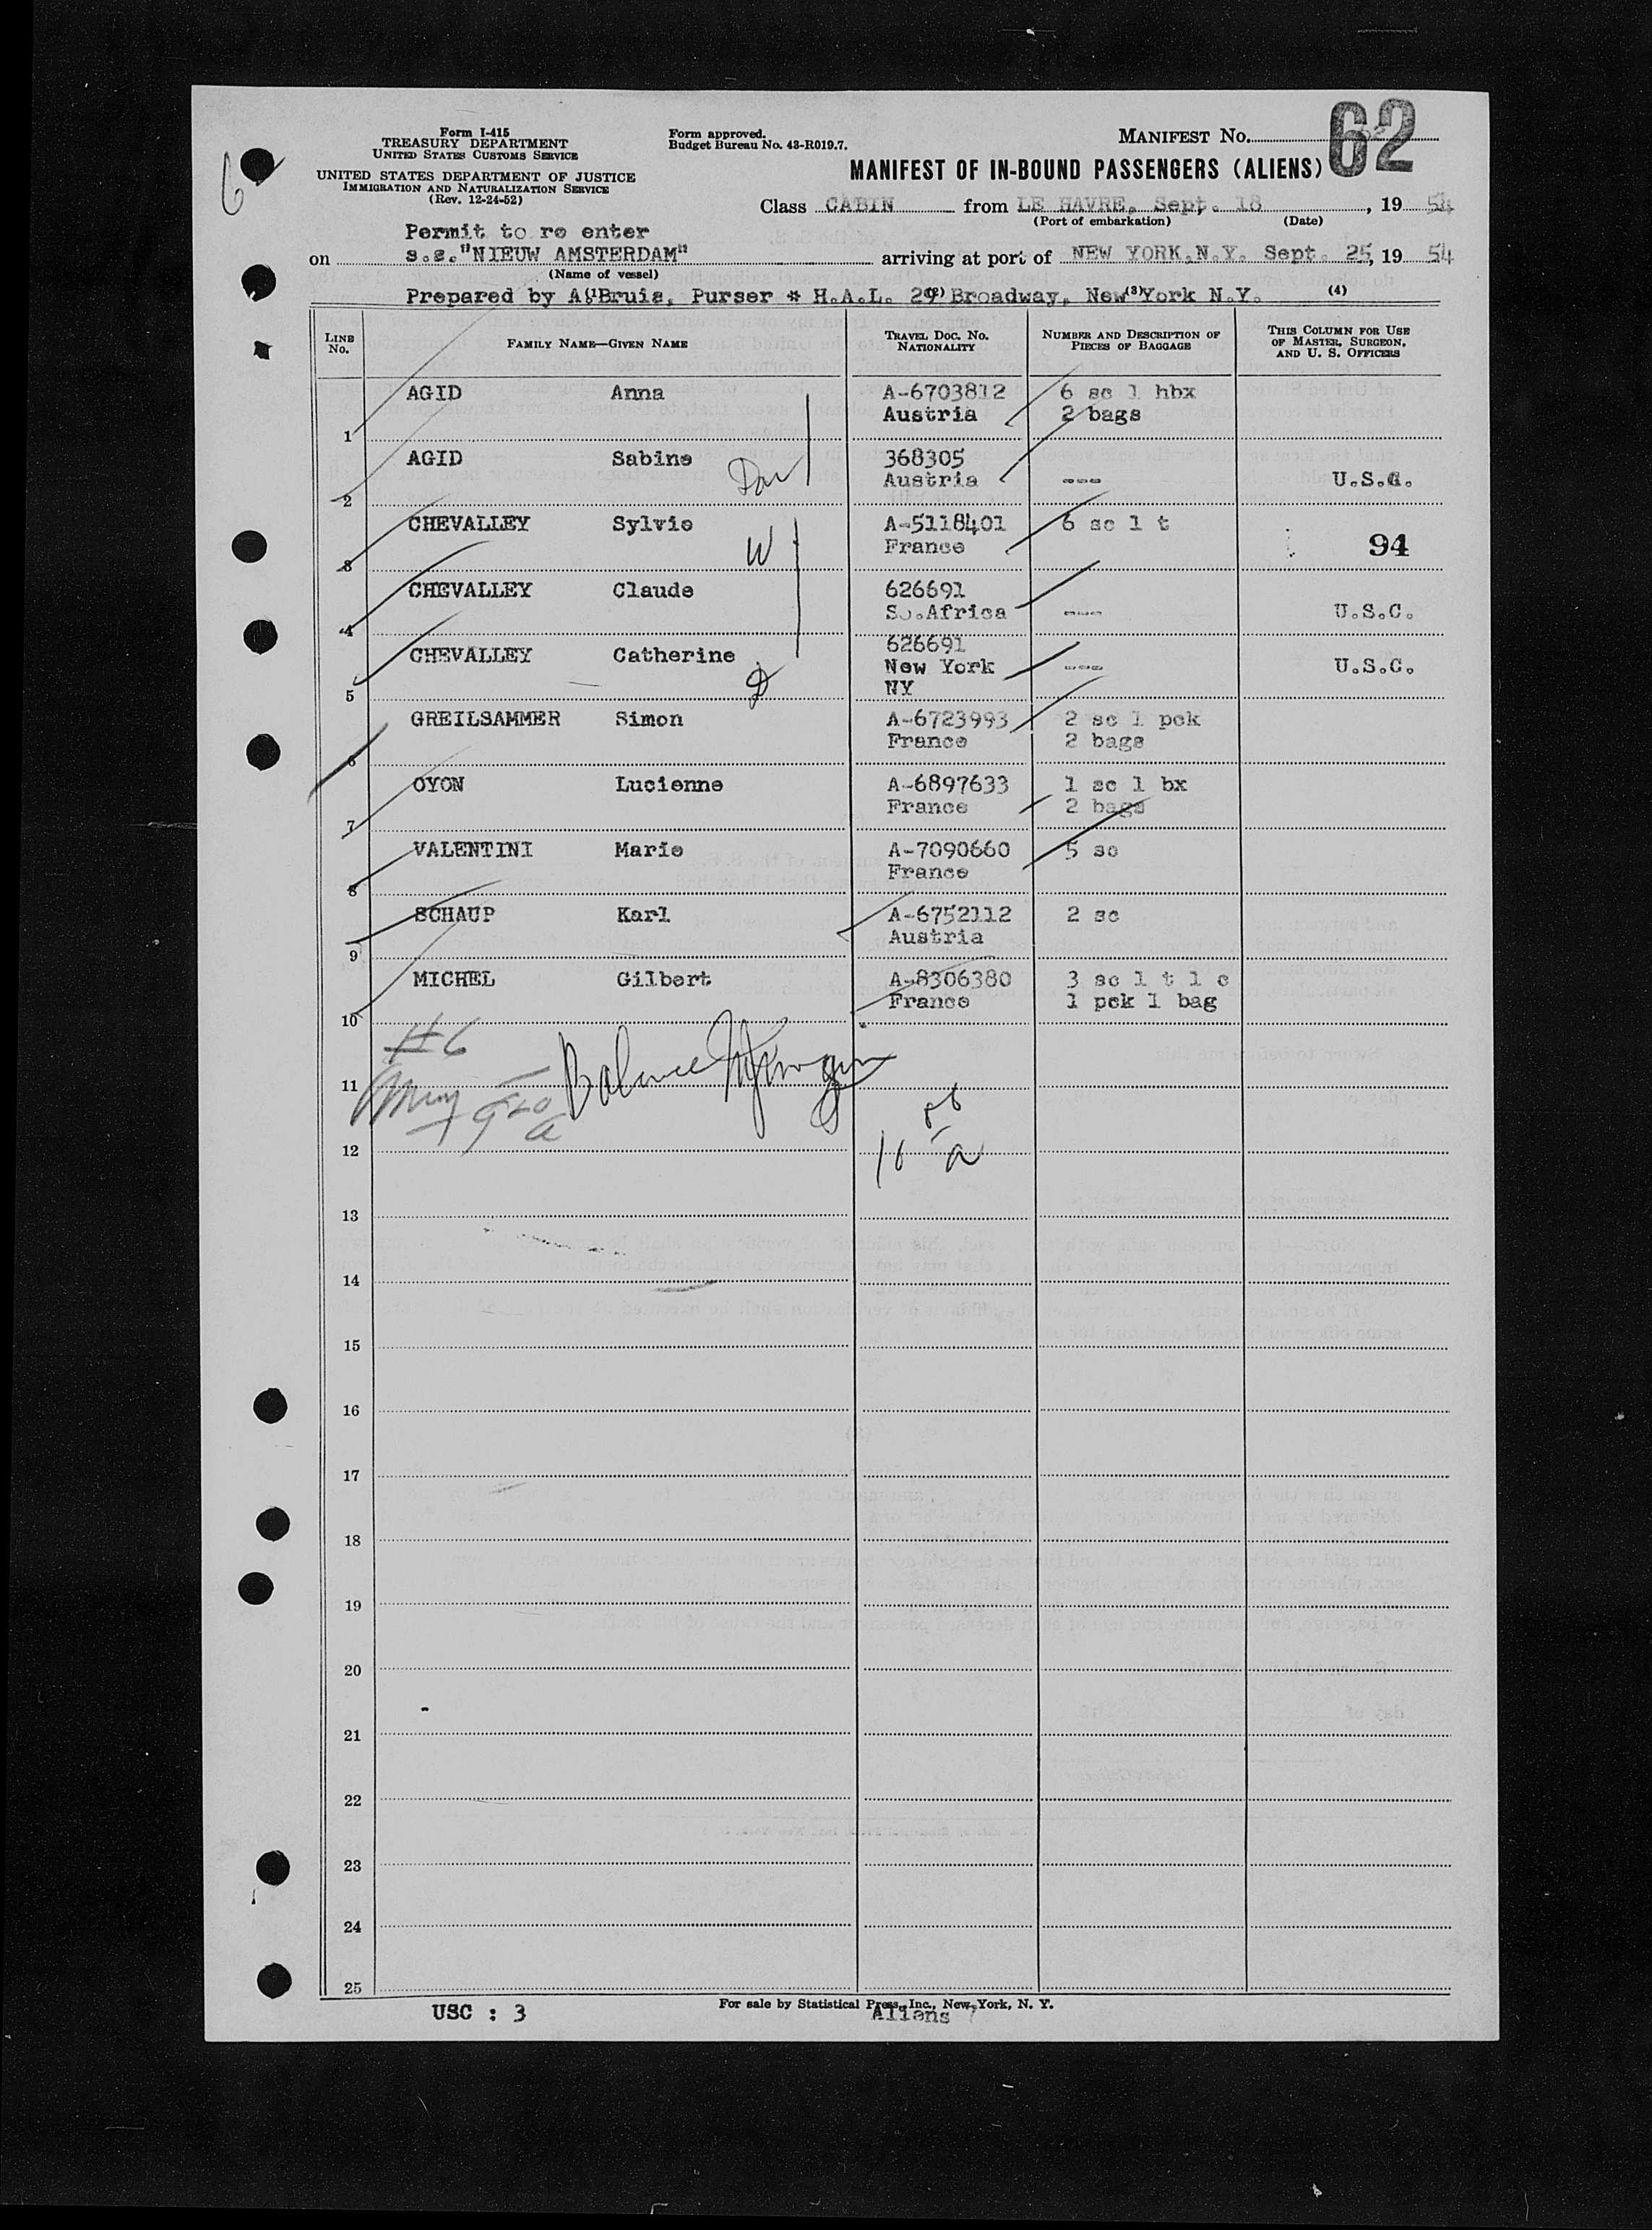 Form I-415
TREASURY DEPARTMENT
UNITED STATES CUSTOMS SERVICE
UNITED STATES DEPARTMENT OF JUSTICE
IMMIGRATION AND NATURALIZATION SERVICE
(Rev. 12-24-52)
Form approved.
Budget Bureau No. 43-R019.7.
MANIFEST No. 62
MANIFEST OF IN-BOUND PASSENGERS (ALIENS)
Class CABIN from LE HAVRE, Sept. 18, 19 54
(Port of embarkation) (Date)
Permit to re enter
on s.s."NIEUW AMSTERDAM" arriving at port of NEW YORK.N.Y. Sept. 25, 19 54
(Name of vessel)
Prepared by A.Bruis, Purser * H.A.L. 29 Broadway, New York N.Y.
(1) (2) (3) (4)
LINE No. FAMILY NAME—GIVEN NAME TRAVEL DOC. NO. NATIONALITY NUMBER AND DESCRIPTION OF PIECES OF BAGGAGE THIS COLUMN FOR USE OF MASTER, SURGEON, AND U. S. OFFICERS
AGID Anna A-6703812 6 sc 1 hbx
1 Austria 2 bags
AGID Sabine 368305
2 Dau Austria --- U.S.C.
CHEVALLEY Sylvie A-5118401 6 sc 1 t
3 W France 94
CHEVALLEY Claude 626691
4 So.Africa --- U.S.C.
CHEVALLEY Catherine 626691
5 D New York --- U.S.C.
NY
GREILSAMMER Simon A-6723993 2 sc 1 pck
6 France 2 bags
OYON Lucienne A-6897633 1 sc 1 bx
7 France 2 bags
VALENTINI Marie A-7090660 5 sc
8 France
SCHAUP Karl A-6752112 2 sc
9 Austria
MICHEL Gilbert A-8306380 3 sc 1 t 1 c
10 France 1 pck 1 bag
#6
11 Balance
12
13
14
15
16
17
18
19
20
21
22
23
24
25
For sale by Statistical Press, Inc., New York, N. Y.
USC : 3 Aliens 7